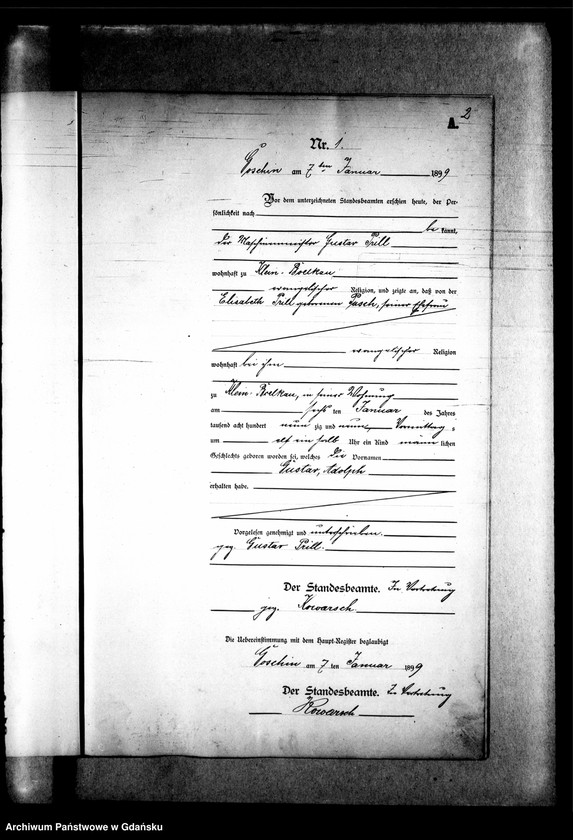 2
A.
Nr. 1.
Goschin am 7ten Januar 1899
Vor dem unterzeichneten Standesbeamten erschien heute, der Per-
sönlichkeit nach
be kannt,
der Maschinenmeister Gustav Prill
wohnhaft zu Klein-Boelkau
evangelischer Religion, und zeigte an, daß von der
Elisabeth Prill geborenen Pasch, seiner Ehefrau
evangelischer Religion
wohnhaft bei ihm
zu Klein-Boelkau, in seiner Wohnung
am sechs ten Januar des Jahres
tausend acht hundert neun zig und neun, Vormittag s
um elf ein halb Uhr ein Kind männ lichen
Geschlechts geboren worden sei, welches die Vornamen
Gustav, Adolph
erhalten habe.
Vorgelesen genehmigt und unterschrieben.
gez. Gustav Prill.
Der Standesbeamte. In Vertretung
gez. Kowarsch
Die Uebereinstimmung mit dem Haupt-Register beglaubigt
Goschin am 7 ten Januar 1899
Der Standesbeamte. In Vertretung
Kowarsch
Archiwum Państwowe w Gdańsku